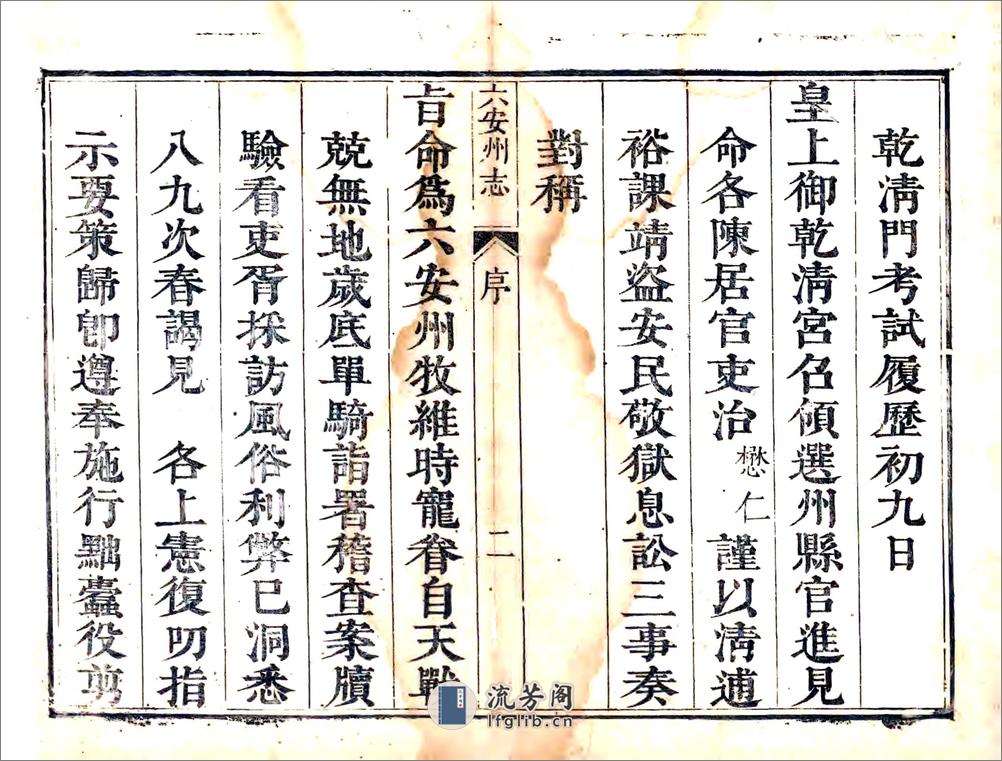 乾清門考試履歷初九日
皇上御乾清宮召傾選州縣官進見
命各陳居官吏治懋仁謹以清逋
裕課靖盜安民敬獄息訟三事奏
對稱
六安州志 序 二
旨命爲六安州牧維時寵眷自天戰
兢無地歲底單騎詣署稽查案牘
驗看吏胥採訪風俗利弊已洞悉
八九次春謁見 各上憲復叨指
示要策歸卽遵奉施行黜蠹役剪
流芳阁
lfglib.cn